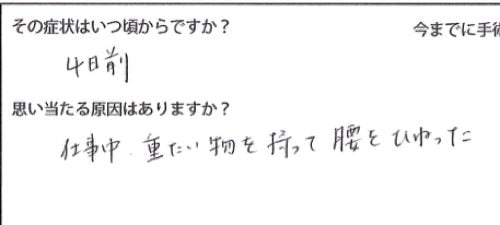 その症状はいつ頃からですか？
今までに手術
4日前
思い当たる原因はありますか？
仕事中、重たい物を持って腰をひねった